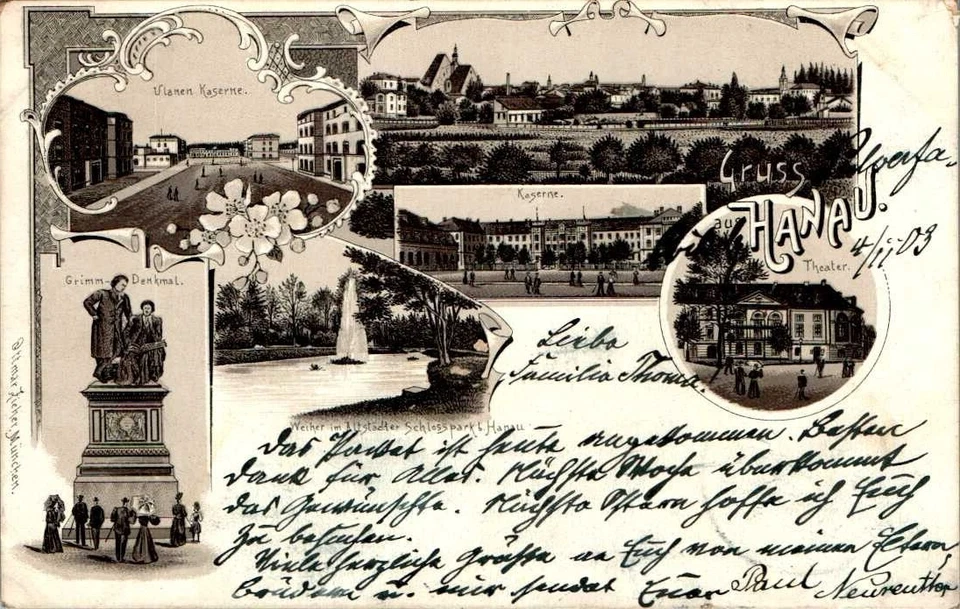 Ulanen Kaserne.
Gruss
aus
HANAU.
4/II 03
Kaserne.
Theater.
Grimm-Denkmal.
Weiher im Altstädter Schlosspark b. Hanau
Ottmar Zieher, München.
Liebe
Familie Thoma.
Das Packet ist heute angekommen. Besten
Dank für Alles. Nächste Woche überkommt
das Gewünschte. Nächste Ostern hoffe ich Euch
zu besuchen.
Viele herzliche Grüße an Euch von meinen Eltern,
Brüdern u. mir sendet Euer Paul